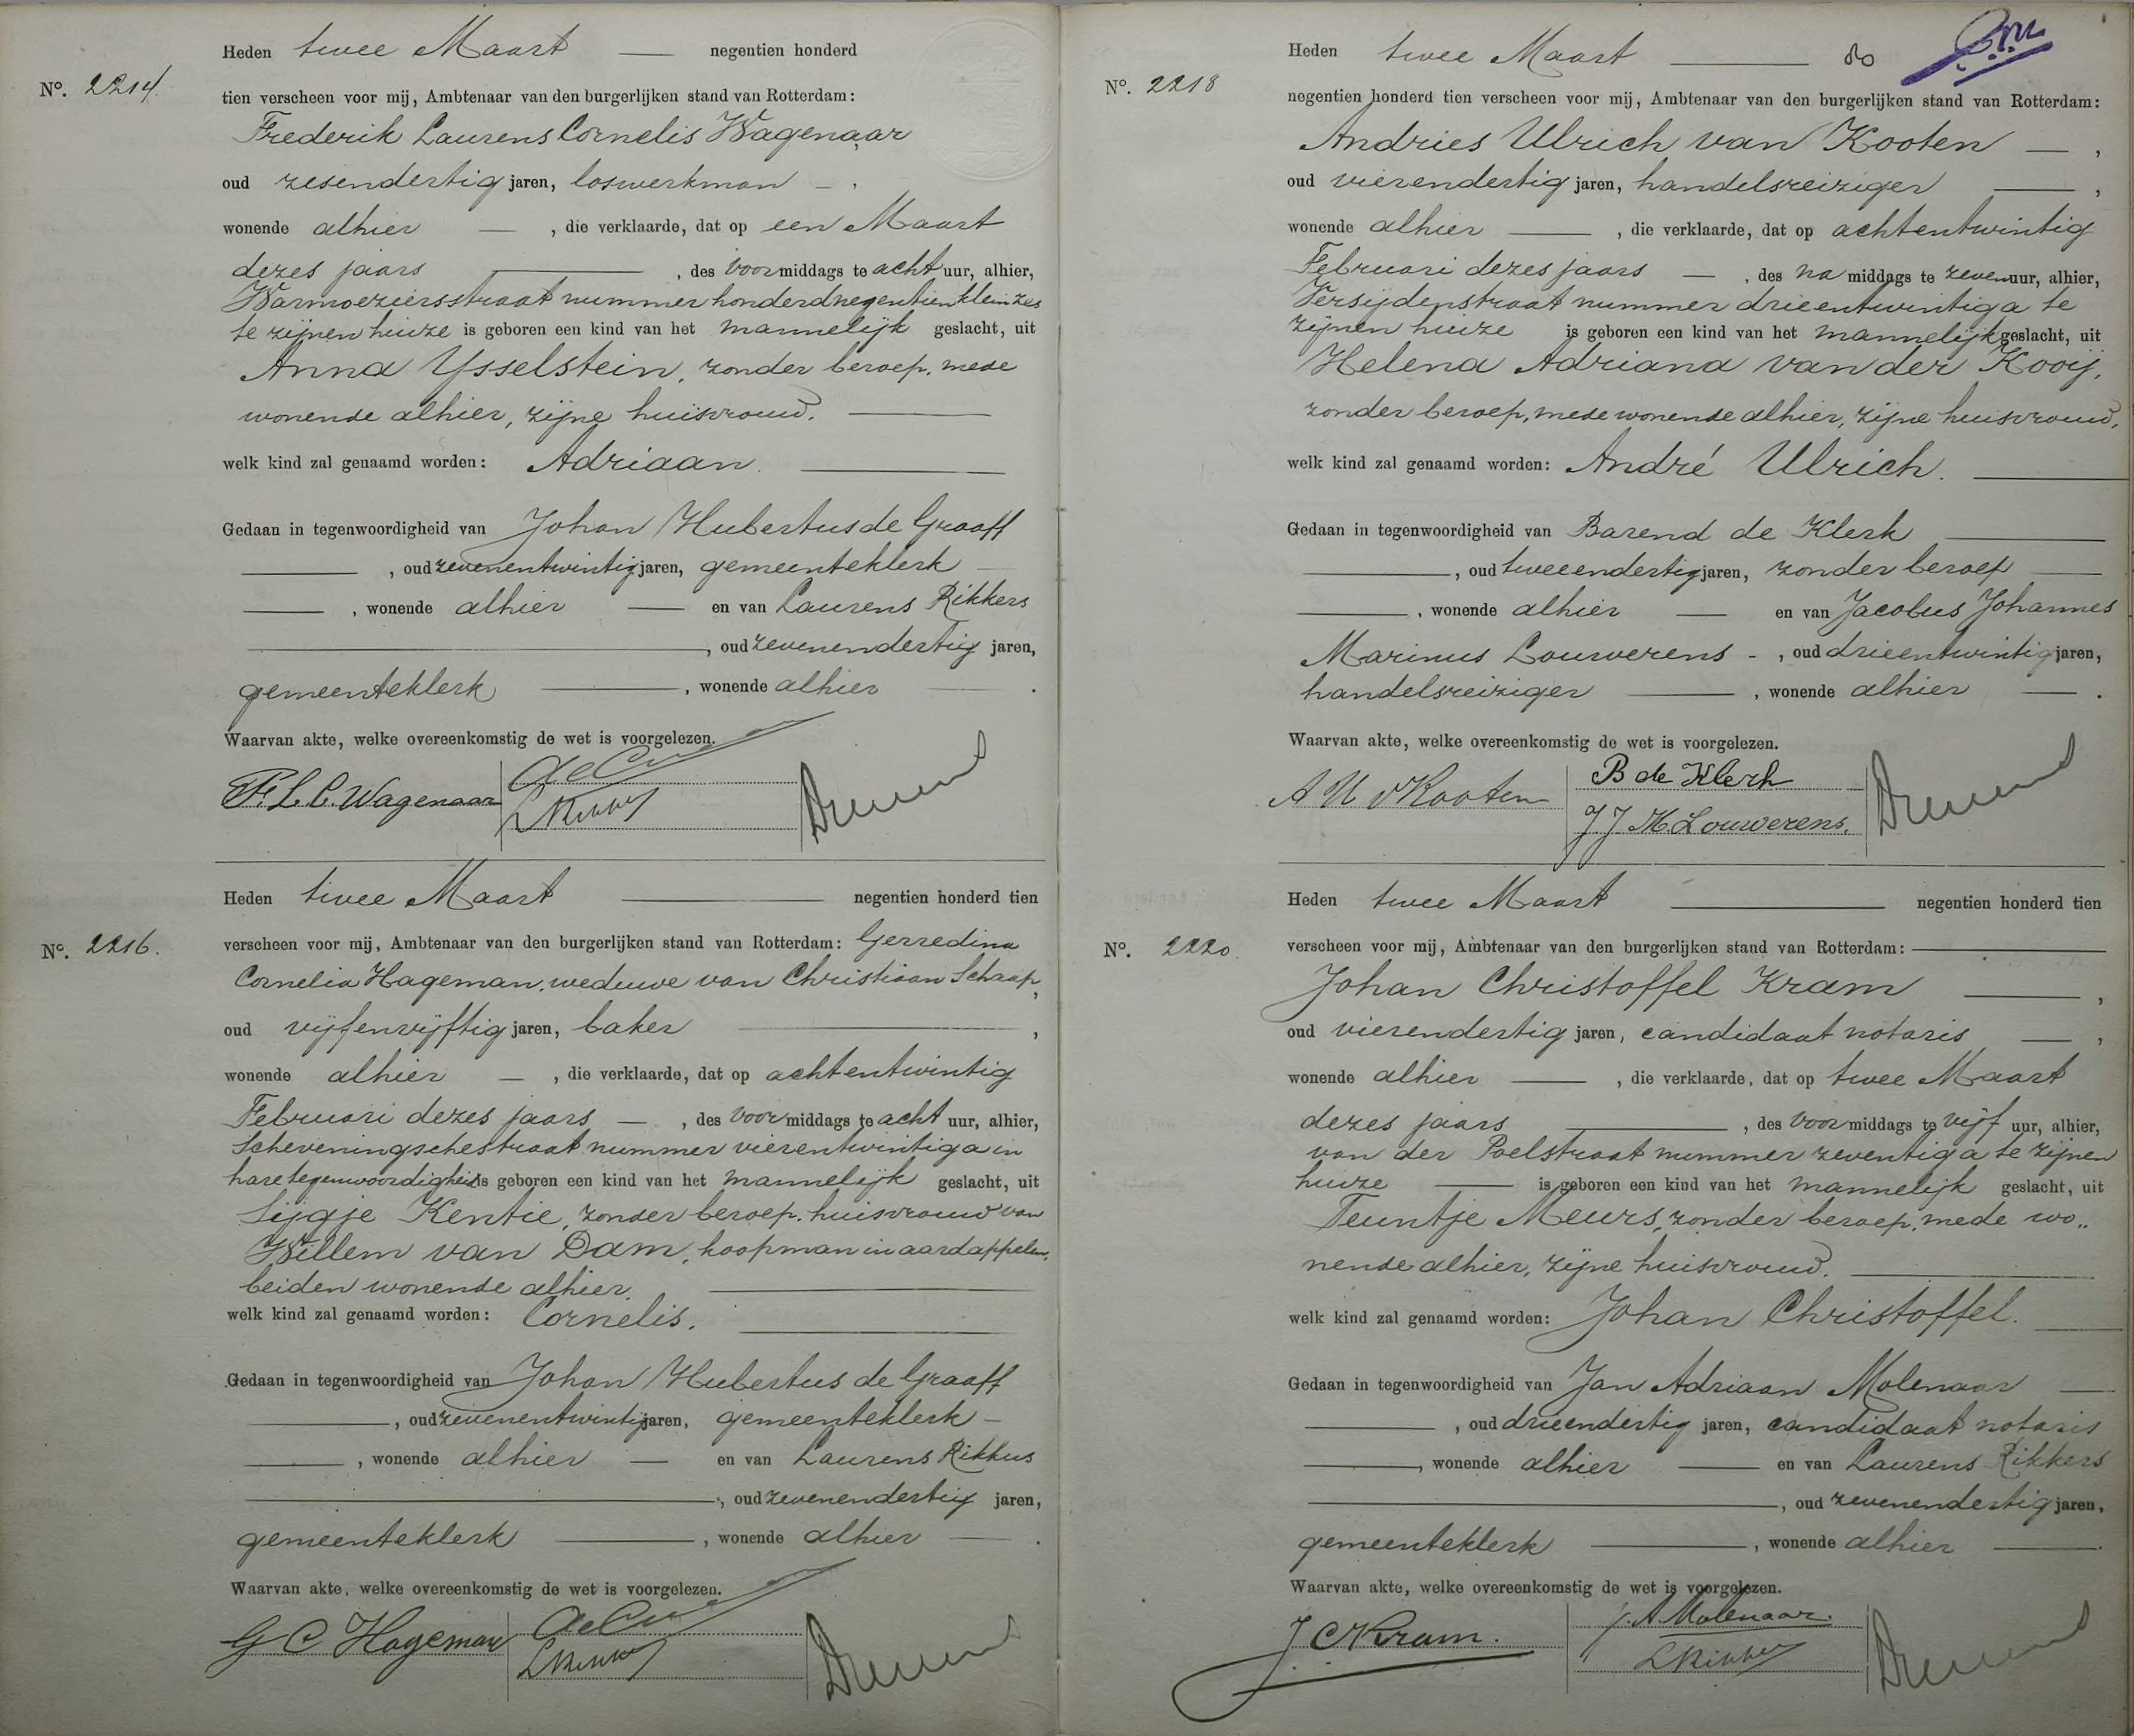 Heden twee Maart negentien honderd
No. 2214.
tien verscheen voor mij, Ambtenaar van den burgerlijken stand van Rotterdam:
Frederik Laurens Cornelis Wagenaar
oud zesendertig jaren, loswerkman,
wonende alhier, die verklaarde, dat op een Maart
dezes jaars, des voormiddags te acht uur, alhier,
Warmoeziersstraat nummer honderdnegentien klein zes
te zijnen huize is geboren een kind van het mannelijk geslacht, uit
Anna Ysselstein, zonder beroep, mede
wonende alhier, zijne huisvrouw.
welk kind zal genaamd worden: Adriaan.
Gedaan in tegenwoordigheid van Johan Hubertus de Graaff
, oud zevenentwintig jaren, gemeenteklerk
, wonende alhier en van Laurens Rikkers
, oud zevenendertig jaren,
gemeenteklerk, wonende alhier.
Waarvan akte, welke overeenkomstig de wet is voorgelezen.
F. L. C. Wagenaar
LRikkers
Heden twee Maart negentien honderd tien
No. 2216.
verscheen voor mij, Ambtenaar van den burgerlijken stand van Rotterdam: Gerredina
Cornelia Hageman, weduwe van Christiaan Schaap,
oud vijfenvijftig jaren, baker,
wonende alhier, die verklaarde, dat op achtentwintig
Februari dezes jaars, des voormiddags te acht uur, alhier,
Scheveningschestraat nummer vierentwintig a in
hare tegenwoordigheid is geboren een kind van het mannelijk geslacht, uit
Sijgje Kentie, zonder beroep, huisvrouw van
Willem van Dam, koopman in aardappelen,
beiden wonende alhier.
welk kind zal genaamd worden: Cornelis.
Gedaan in tegenwoordigheid van Johan Hubertus de Graaff
, oud zevenentwintig jaren, gemeenteklerk
, wonende alhier en van Laurens Rikkers
, oud zevenendertig jaren,
gemeenteklerk, wonende alhier.
Waarvan akte, welke overeenkomstig de wet is voorgelezen.
G C Hageman
LRikkers
Heden twee Maart
No. 2218
negentien honderd tien verscheen voor mij, Ambtenaar van den burgerlijken stand van Rotterdam:
Andries Ulrich van Kooten,
oud vierendertig jaren, handelsreiziger,
wonende alhier, die verklaarde, dat op achtentwintig
Februari dezes jaars, des na middags te zeven uur, alhier,
Persijdenstraat nummer drieentwintig a te
zijnen huize is geboren een kind van het mannelijk geslacht, uit
Helena Adriana van der Kooij,
zonder beroep, mede wonende alhier, zijne huisvrouw,
welk kind zal genaamd worden: André Ulrich.
Gedaan in tegenwoordigheid van Barend de Klerk
, oud tweeendertig jaren, zonder beroep
, wonende alhier en van Jacobus Johannes
Marinus Louwerens, oud drieentwintig jaren,
handelsreiziger, wonende alhier.
Waarvan akte, welke overeenkomstig de wet is voorgelezen.
A U v Kooten
B de Klerk
J J M. Louwerens.
Heden twee Maart negentien honderd tien
No. 2220.
verscheen voor mij, Ambtenaar van den burgerlijken stand van Rotterdam:
Johan Christoffel Kram,
oud vierendertig jaren, candidaat notaris,
wonende alhier, die verklaarde, dat op twee Maart
dezes jaars, des voormiddags te vijf uur, alhier,
van der Poelstraat nummer zeventig a te zijnen
huize is geboren een kind van het mannelijk geslacht, uit
Teuntje Meurs, zonder beroep, mede wo„
nende alhier, zijne huisvrouw.
welk kind zal genaamd worden: Johan Christoffel.
Gedaan in tegenwoordigheid van Jan Adriaan Molenaar
, oud drieendertig jaren, candidaat notaris
, wonende alhier en van Laurens Rikkers
, oud zevenendertig jaren,
gemeenteklerk, wonende alhier.
Waarvan akte, welke overeenkomstig de wet is voorgelezen.
J. C Kram.
J. A Molenaar.
LRikkers